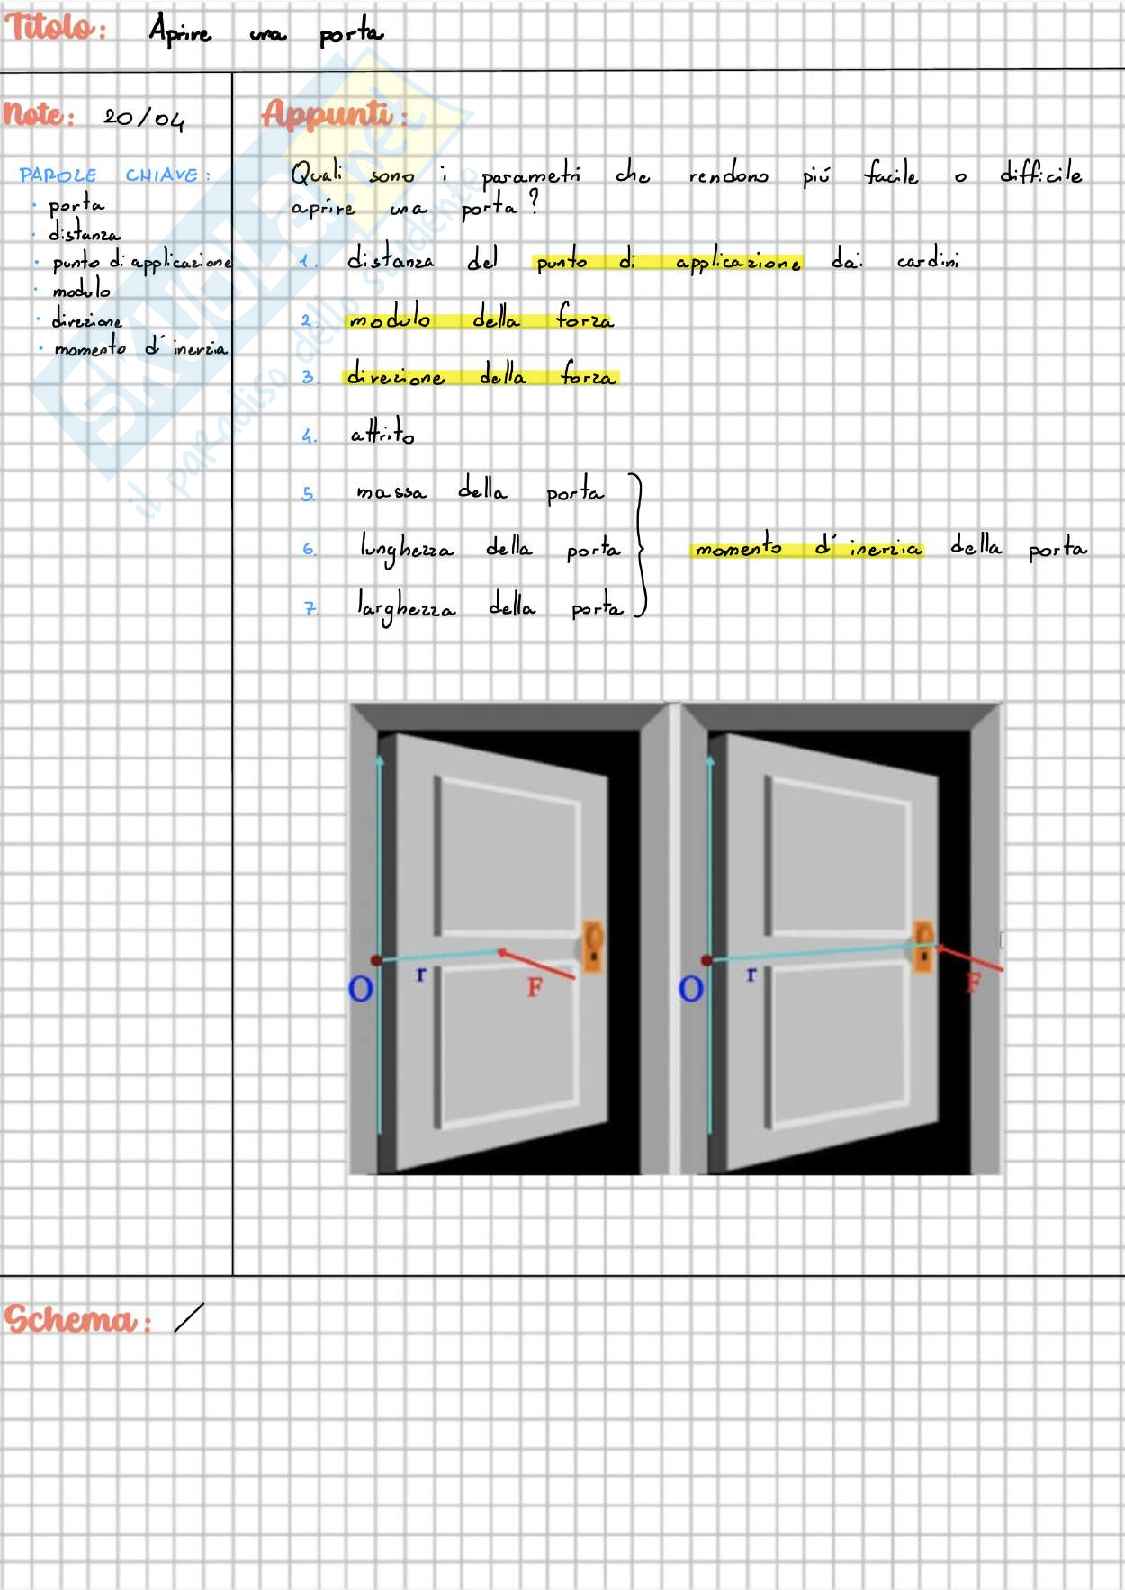 Titolo: Aprire una porta
Note: 20/04
PAROLE CHIAVE:
· porta
· distanza
· punto di applicazione
· modulo
· direzione
· momento d'inerzia
Appunti:
Quali sono i parametri che rendono piú facile o difficile
aprire una porta?
1. distanza del punto di applicazione dai cardini
2. modulo della forza
3. direzione della forza
4. attrito
5. massa della porta
6. lunghezza della porta
7. larghezza della porta
momento d'inerzia della porta
O r F
O r F
Schema: /
SKUOLA.net
il paradiso dello studente